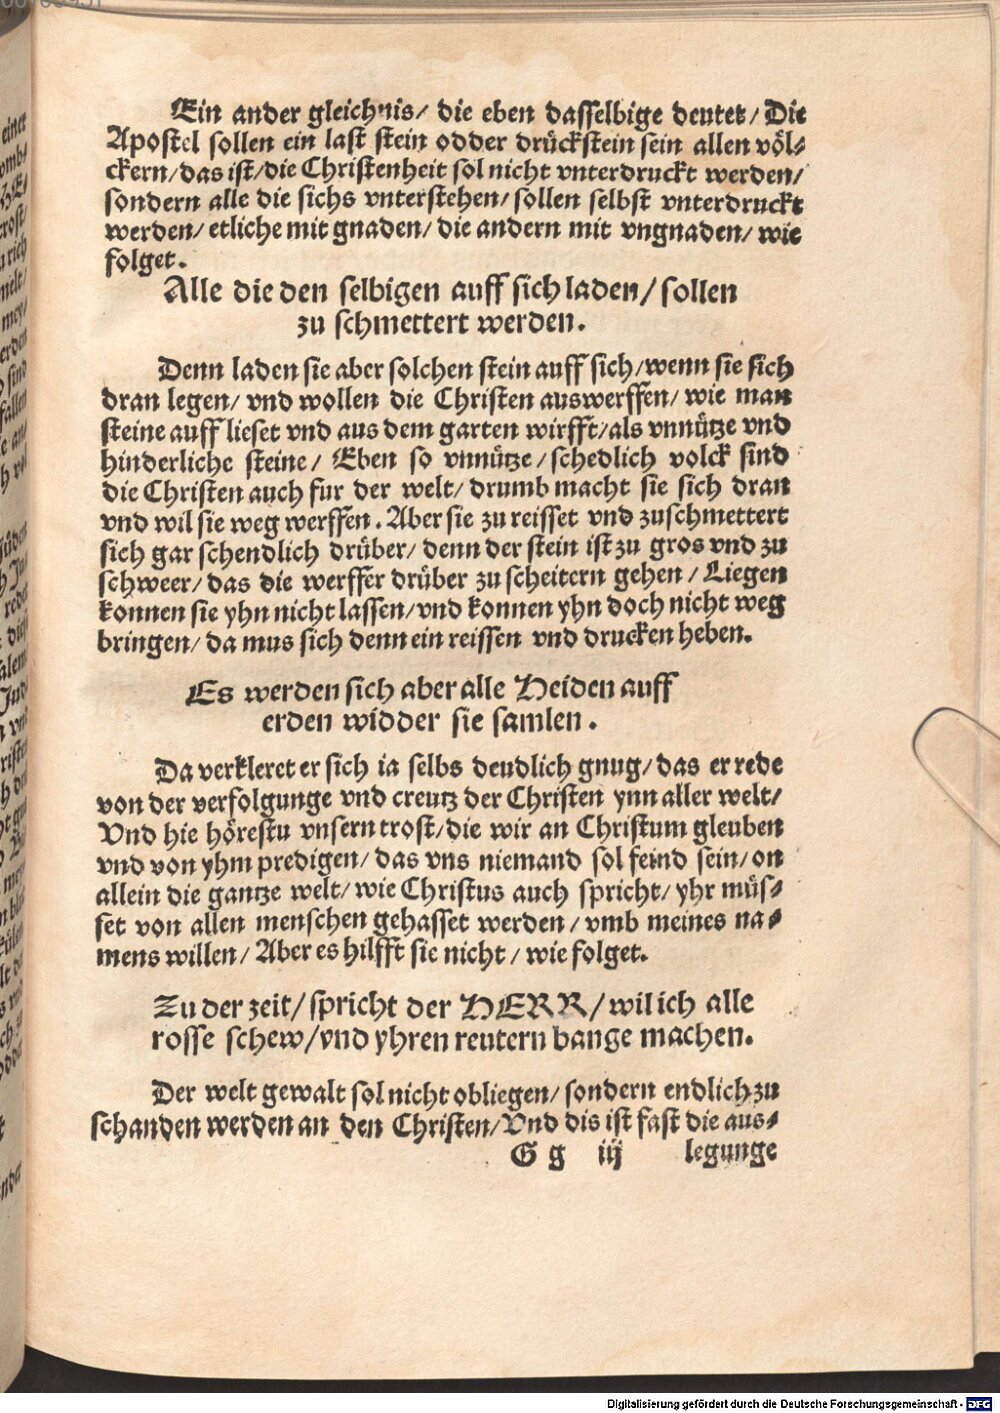 Ein ander gleichnis/ die eben dasselbige deutet/ Die
Apostel sollen ein last stein odder drückstein sein allen völ-
ckern/ das ist/ die Christenheit sol nicht vnterdruckt werden/
sondern alle die sichs vnterstehen/ sollen selbst vnterdruckt
werden/ etliche mit gnaden/ die andern mit vngnaden/ wie
folget.
Alle die den selbigen auff sich laden/ sollen
zu schmettert werden.
Denn laden sie aber solchen stein auff sich/ wenn sie sich
dran legen/ vnd wollen die Christen auswerffen/ wie man
steine auff lieset vnd aus dem garten wirfft/ als vnnütze vnd
hinderliche steine/ Eben so vnnütze/ schedlich volck sind
die Christen auch fur der welt/ drumb macht sie sich dran
vnd wil sie weg werffen. Aber sie zu reisset vnd zuschmettert
sich gar schendlich drüber/ denn der stein ist zu gros vnd zu
schweer/ das die werffer drüber zu scheitern gehen/ Liegen
konnen sie yhn nicht lassen/ vnd konnen yhn doch nicht weg
bringen/ da mus sich denn ein reissen vnd drucken heben.
Es werden sich aber alle Heiden auff
erden widder sie samlen.
Da verkleret er sich ia selbs deudlich gnug/ das er rede
von der verfolgunge vnd creutz der Christen ynn aller welt/
Vnd hie hörestu vnsern trost/ die wir an Christum gleuben
vnd von yhm predigen/ das vns niemand sol feind sein/ on
allein die gantze welt/ wie Christus auch spricht/ yhr müs-
set von allen menschen gehasset werden/ vmb meines na-
mens willen/ Aber es hilfft sie nicht/ wie folget.
Zu der zeit/ spricht der HERR/ wil ich alle
rosse schew/ vnd yhren reutern bange machen.
Der welt gewalt sol nicht obliegen/ sondern endlich zu
schanden werden an den Christen/ Vnd dis ist fast die aus-
G g iij legunge
Digitalisierung gefördert durch die Deutsche Forschungsgemeinschaft - DFG